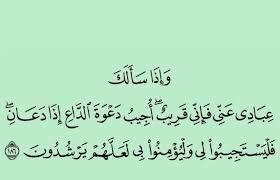 وَإِذَا سَأَلَكَ
عِبَادِى عَنِّى فَإِنِّى قَرِيبٌ ۖ أُجِيبُ دَعْوَةَ ٱلدَّاعِ إِذَا دَعَانِ ۖ
فَلْيَسْتَجِيبُوا۟ لِى وَلْيُؤْمِنُوا۟ بِى لَعَلَّهُمْ يَرْشُدُونَ ١٨٦